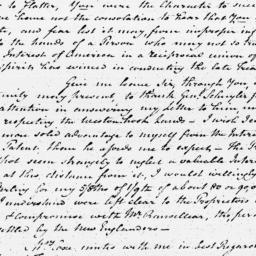 to Flatter, You were the Character to suc
we have not the consolation to hear that You
te, and fear lest it may, from improper inf
to the hands of a Person who may not so tru
Interest of America in a reciprocal union of
Spirit has evinced in conducting the late
Give me leave, Sir, through You
mily may present to thank Genl. Schuyler
attention in answering my letter to him, in
respecting the Westenhook Lands — I wish I
mon solid advantage to myself from the Intere
Patent, than he affords me to expect — The
that seem strangely to neglect a valuable Inter
at this distance from it, I would willingly
Sterling for my 5/8ths of 1/9th of about 80 or 90,0
I understand were left clear to the Proprietors
& Compromise with Mr. Ranssellear, the per
settled by the New Englanders —
Mrs. Coxe unites with me in best Regard